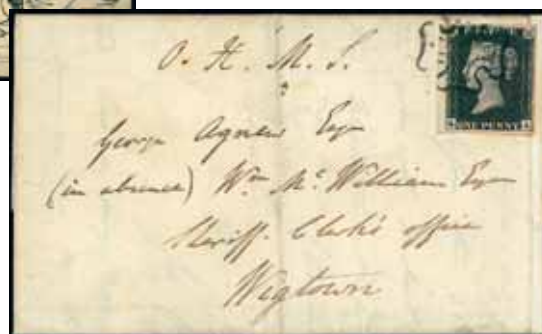 O. H. M. S.
George Agnew Esqr
(in absence) Wm. Mc.William Esqr
Sheriff. Clerk's office
Wigtown
ONE PENNY